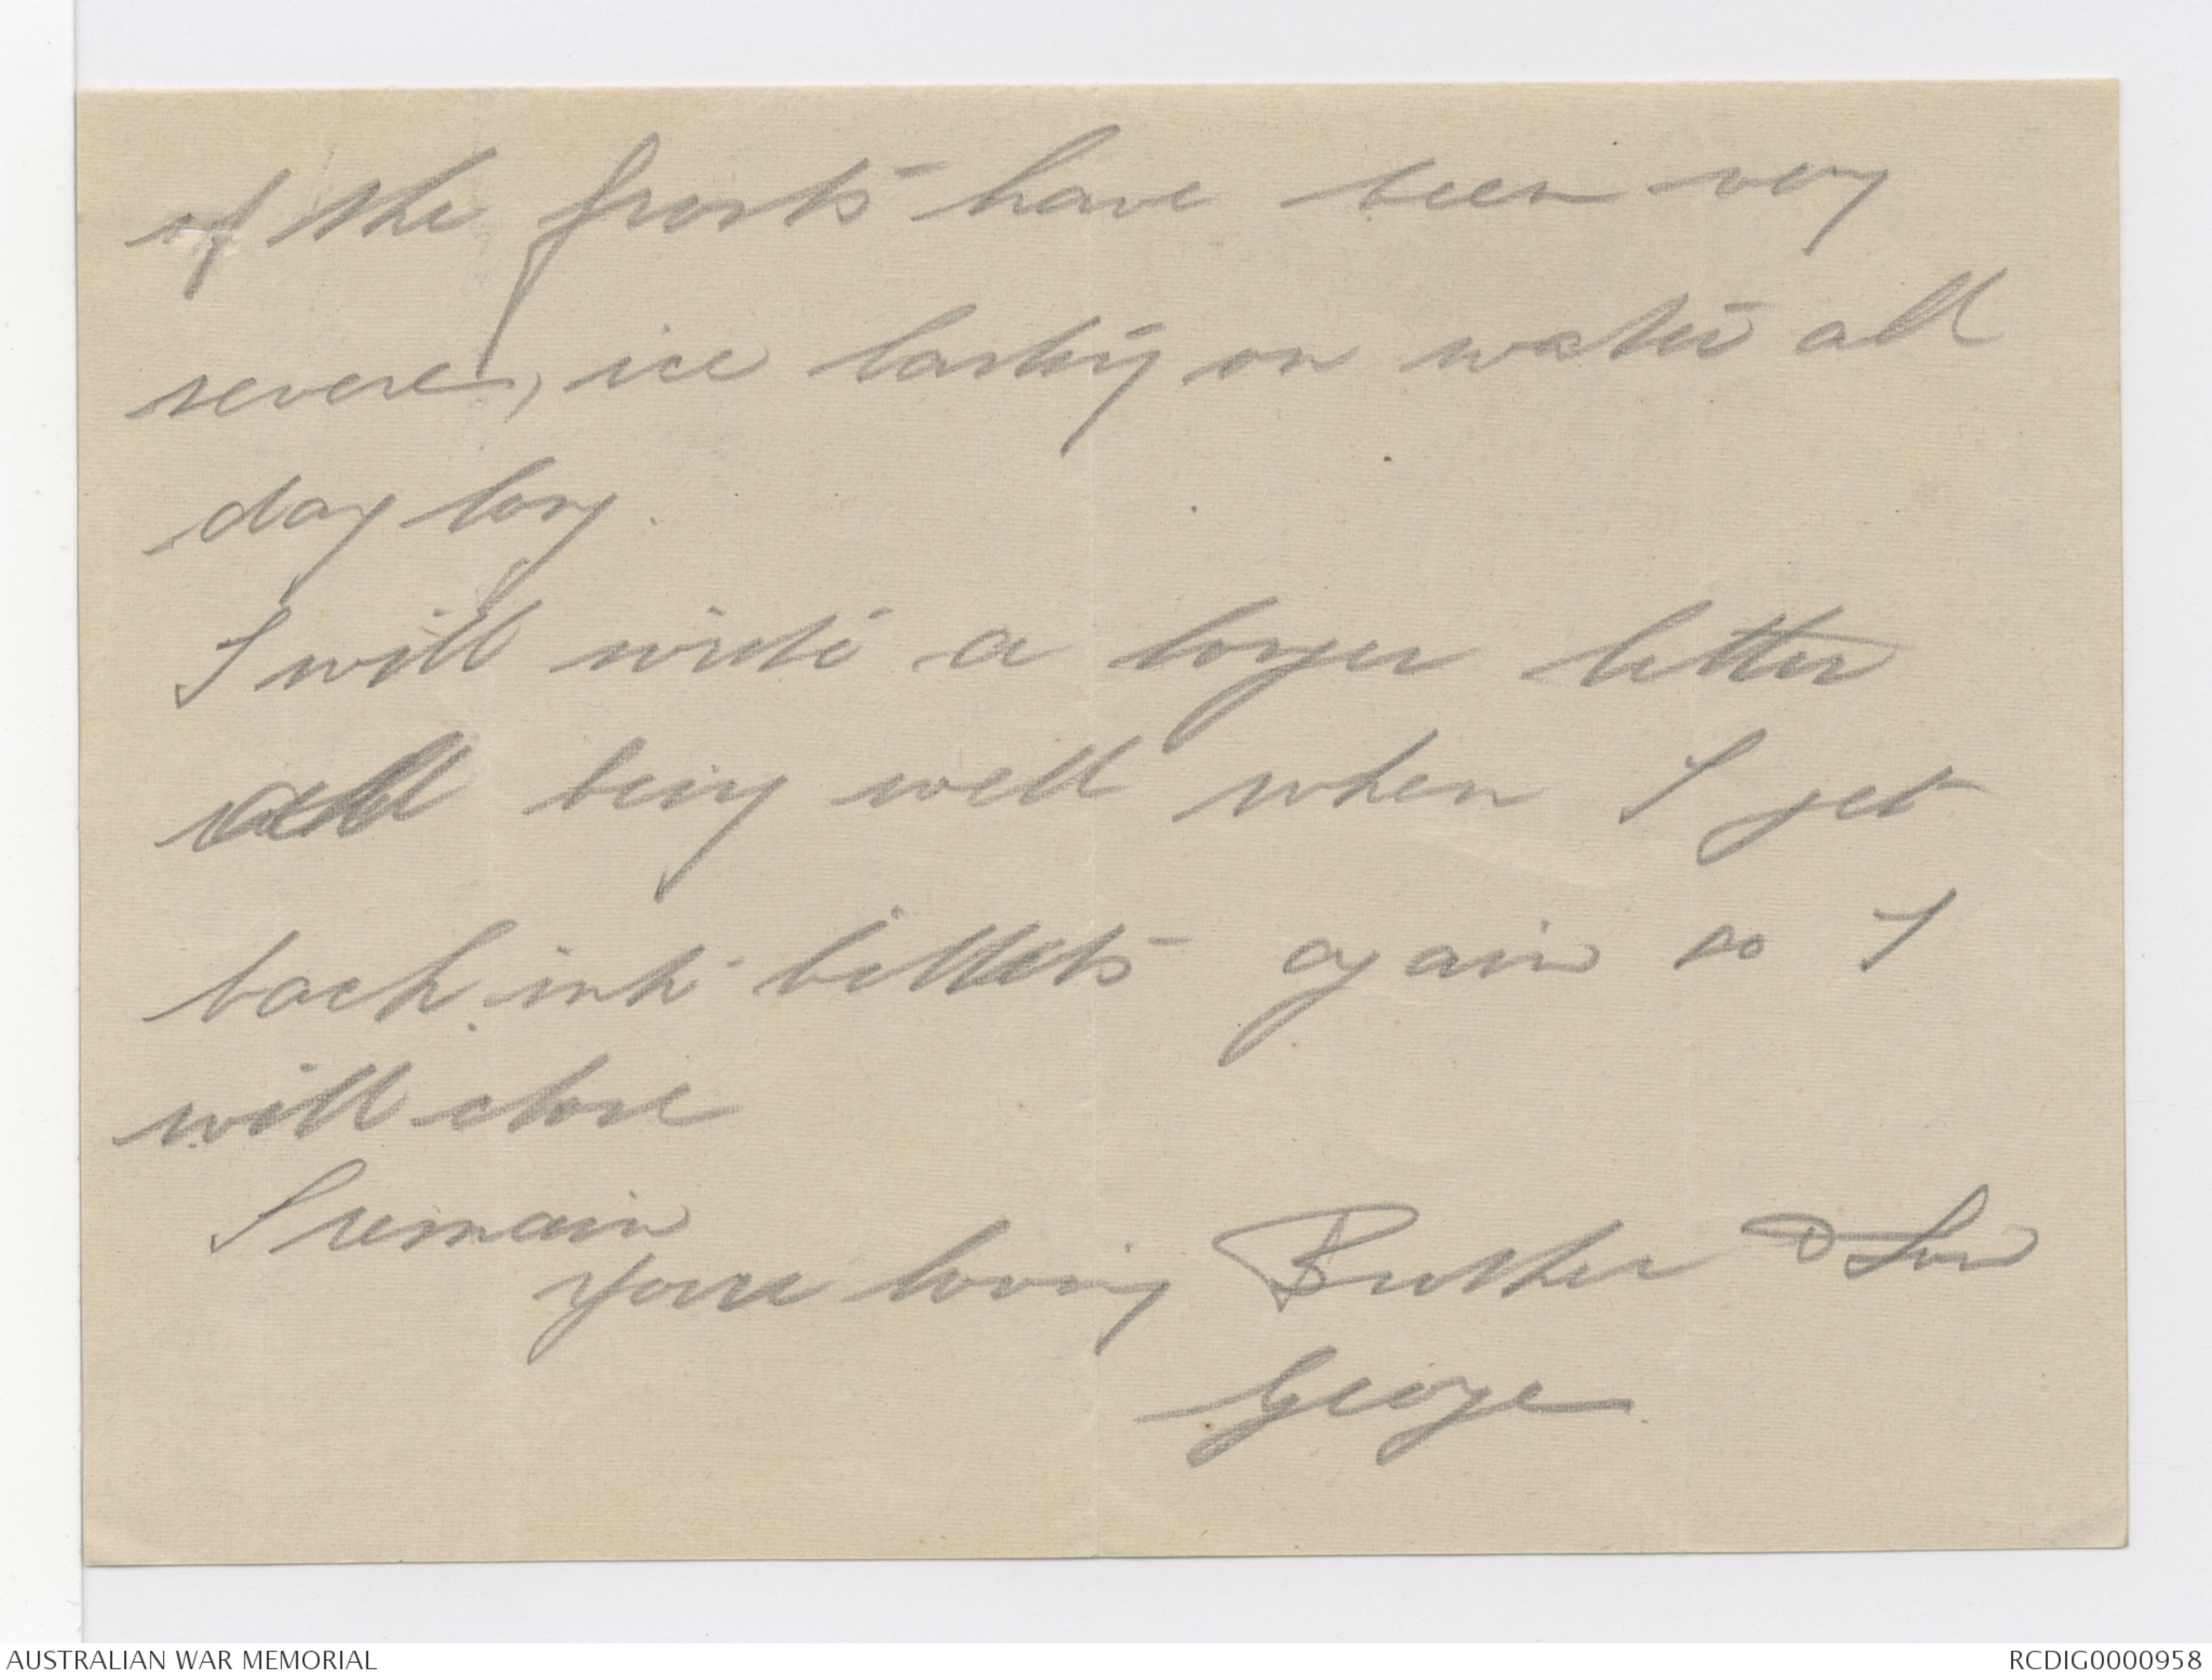 of the frosts have been very
severe, ice lasting on water all
day long.
I will write a longer letter
all being well when I get
back into billets again so I
will close
I remain
your loving Brother & Son
George
AUSTRALIAN WAR MEMORIAL
RCDIG0000958